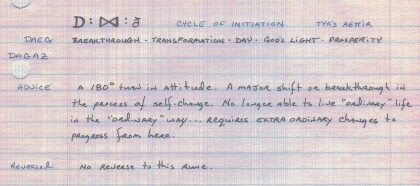 D : ᛞ : ð CYCLE OF INITIATION TYR'S AETTIR
DAEG BREAKTHROUGH · TRANSFORMATION · DAY · GOD'S LIGHT · PROSPERITY
DAGAZ
ADVICE A 180° turn in attitude. A major shift or breakthrough in
the process of self-change. No longer able to live "ordinary" life
in the "ordinary" way... requires EXTRA ORDINARY changes to
progress from here.
REVERSED No reverse to this rune.